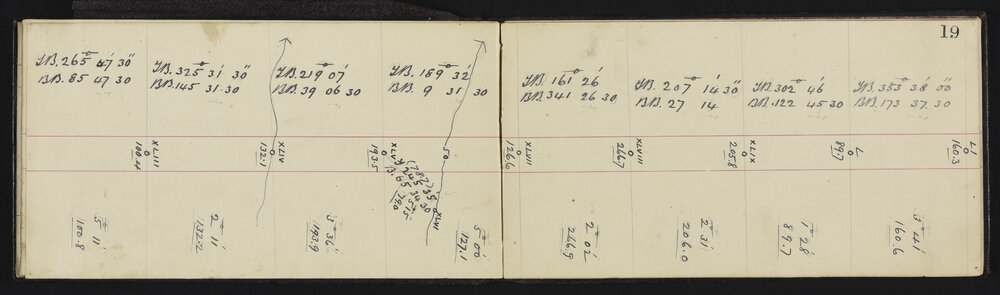 19
F.B. 265° 47' 30"
B.B. 85 47 30
F.B. 325° 31' 30"
B.B. 145 31.30
F.B. 219° 07'
B.B. 39 06 30
F.B. 189° 32'
B.B. 9 31 30
F.B. 161° 26'
B.B. 341 26 30
F.B. 207° 14' 30"
B.B. 27 14
F.B. 302° 46'
B.B. 122 45 30
F.B. 353° 38' 00"
B.B. 173 37.30
XLIII
100.4
XLIV
132.1
XLV
193.5
50
XLVI
XLVII
126.6
XLVIII
246.7
XLIX
205.8
L
89.7
LI
160.3
5° 11'
100.8
2° 11'
132.2
3° 36'
193.9
5° 00'
127.1
2° 02'
246.9
2° 31'
206.0
1° 28'
89.7
3° 41'
160.6